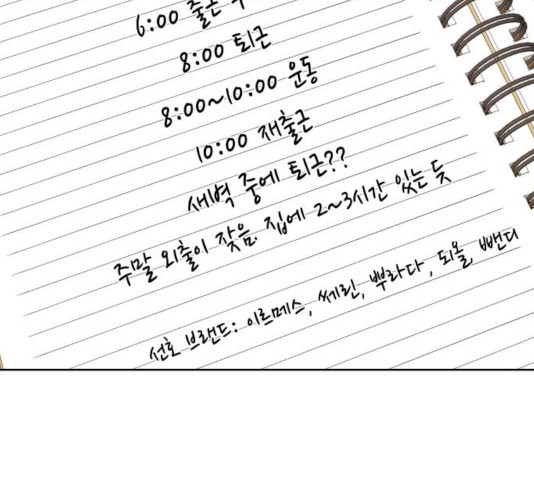 6:00 출근
8:00 퇴근
8:00~10:00 운동
10:00 재출근
새벽 중에 퇴근??
주말 외출이 잦음. 집에 2~3시간 있는 듯
선호 브랜드: 이르메스, 쎄린, 뿌라다, 되올, 빤디